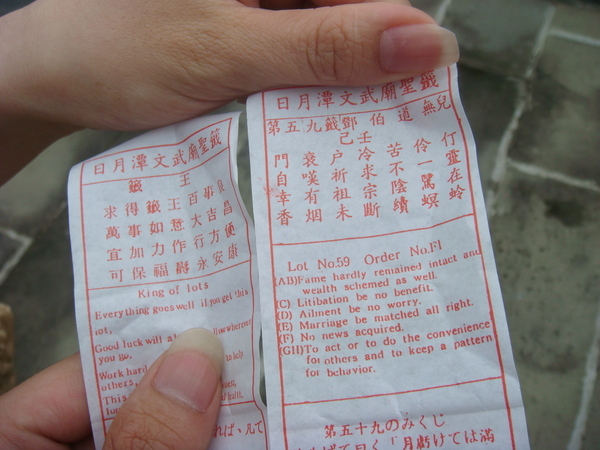 日月潭文武廟聖籤
籤 王
求得籤王百事良
萬事如意大吉昌
宜加力作行方便
可保福壽永安康
King of lots
Everything goes well if you get this
lot,
Good luck will follow wherever
you go.
Work hard to help
others,
This
health.
れば、凡て
日月潭文武廟聖籤
第五九籤鄧伯道無兒
己壬
門衰户冷苦伶仃
自嘆祈求不一靈
幸有祖宗陰騭在
香烟未斷續螟蛉
Lot No.59 Order No.F1
(AB)Fame hardly remained intact and
wealth schemed as well.
(C) Litibation be no benefit.
(D) Ailment be no worry.
(E) Marriage be matched all right.
(F) No news acquired.
(GH)To act or to do the convenience
for others and to keep a pattern
for behavior.
第五十九のみくじ
げて曰く「月虧けては滿